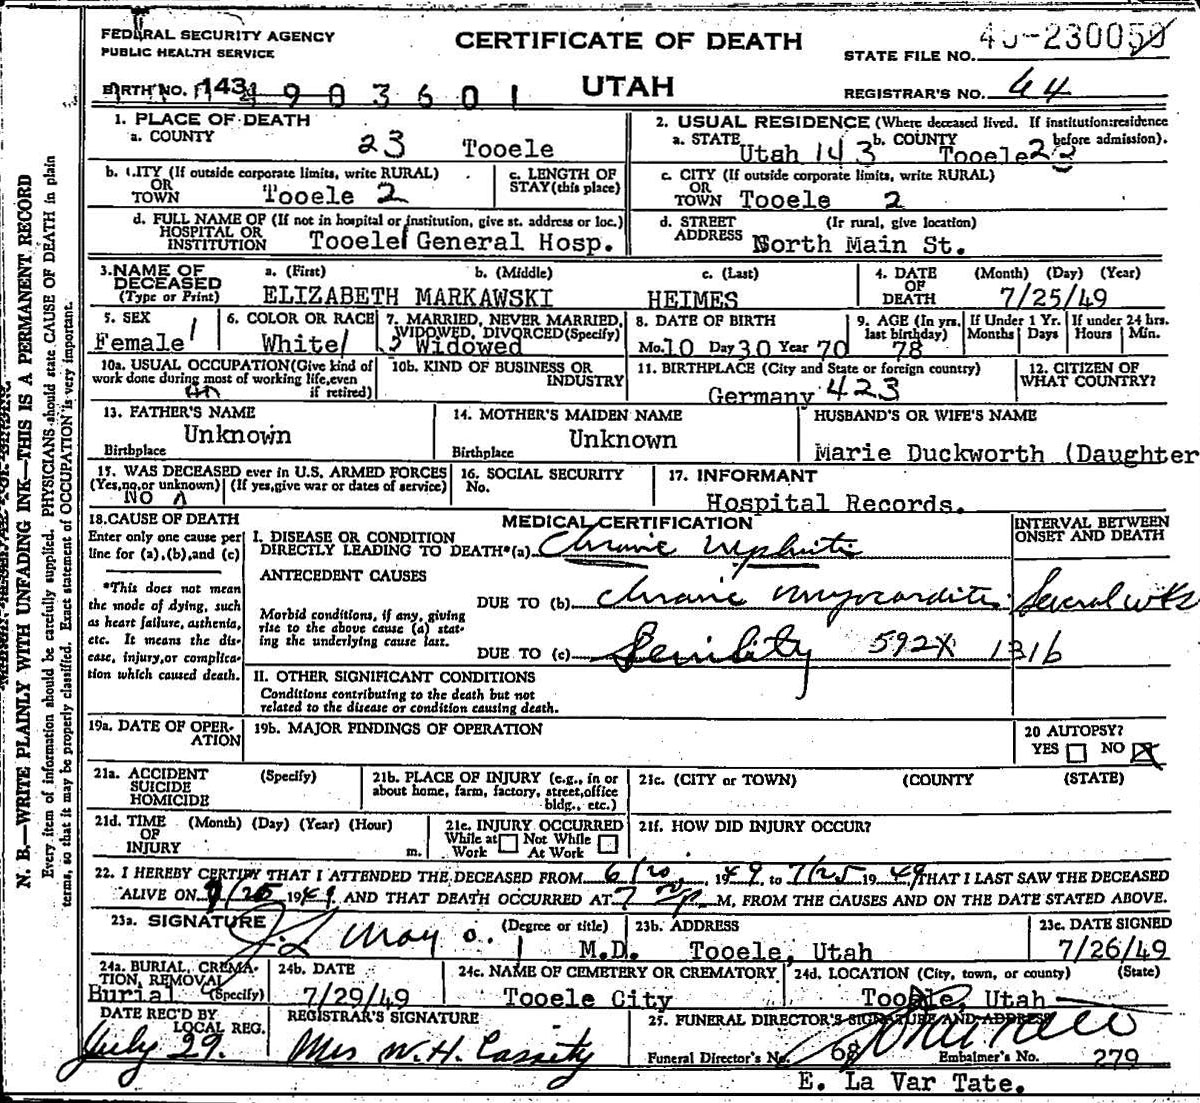 FEDERAL SECURITY AGENCY
PUBLIC HEALTH SERVICE
CERTIFICATE OF DEATH
UTAH
STATE FILE NO.
REGISTRAR'S NO. 44
BIRTH NO. 143 4903601
1. PLACE OF DEATH
a. COUNTY 23 Tooele
2. USUAL RESIDENCE (Where deceased lived. If institution: residence before admission).
a. STATE Utah 143 b. COUNTY Tooele 23
b. CITY (If outside corporate limits, write RURAL)
OR
TOWN Tooele 2
c. LENGTH OF
STAY (this place)
c. CITY (If outside corporate limits, write RURAL)
OR
TOWN Tooele 2
d. FULL NAME OF (If not in hospital or institution, give st. address or loc.)
HOSPITAL OR
INSTITUTION Tooele General Hosp.
d. STREET (Ir rural, give location)
ADDRESS North Main St.
3. NAME OF
DECEASED
(Type or Print)
a. (First) b. (Middle) c. (Last)
ELIZABETH MARKAWSKI HEIMES
4. DATE (Month) (Day) (Year)
OF
DEATH 7/25/49
5. SEX
Female 1
6. COLOR OR RACE
White 1
7. MARRIED, NEVER MARRIED,
WIDOWED, DIVORCED (Specify)
Widowed
8. DATE OF BIRTH
Mo. 10 Day 30 Year 70
9. AGE (In yrs. last birthday)
78
If Under 1 Yr.
Months Days
If under 24 hrs.
Hours Min.
10a. USUAL OCCUPATION (Give kind of
work done during most of working life, even
if retired)
10b. KIND OF BUSINESS OR
INDUSTRY
11. BIRTHPLACE (City and State or foreign country)
Germany 423
12. CITIZEN OF
WHAT COUNTRY?
13. FATHER'S NAME
Unknown
Birthplace
14. MOTHER'S MAIDEN NAME
Unknown
Birthplace
HUSBAND'S OR WIFE'S NAME
Marie Duckworth (Daughter
15. WAS DECEASED ever in U.S. ARMED FORCES
(Yes, no, or unknown) (If yes, give war or dates of service)
NO
16. SOCIAL SECURITY
No.
17. INFORMANT
Hospital Records.
18. CAUSE OF DEATH
Enter only one cause per
line for (a), (b), and (c)
*This does not mean
the mode of dying, such
as heart failure, asthenia,
etc. It means the dis-
ease, injury, or complica-
tion which caused death.
MEDICAL CERTIFICATION
I. DISEASE OR CONDITION
DIRECTLY LEADING TO DEATH*(a) Chronic nephritis
ANTECEDENT CAUSES
Morbid conditions, if any, giving
rise to the above cause (a) stat-
ing the underlying cause last.
DUE TO (b) chronic myocarditis
DUE TO (c) Senility 592X 1316
INTERVAL BETWEEN
ONSET AND DEATH
Several wks
II. OTHER SIGNIFICANT CONDITIONS
Conditions contributing to the death but not
related to the disease or condition causing death.
19a. DATE OF OPER-
ATION
19b. MAJOR FINDINGS OF OPERATION
20 AUTOPSY?
YES NO
21a. ACCIDENT (Specify)
SUICIDE
HOMICIDE
21b. PLACE OF INJURY (e.g., in or
about home, farm, factory, street, office
bldg., etc.)
21c. (CITY or TOWN) (COUNTY (STATE)
21d. TIME (Month) (Day) (Year) (Hour)
OF
INJURY m.
21e. INJURY OCCURRED
While at Not While
Work At Work
21f. HOW DID INJURY OCCUR?
22. I HEREBY CERTIFY THAT I ATTENDED THE DECEASED FROM 6/20, 1949, to 7/25 1949, THAT I LAST SAW THE DECEASED
ALIVE ON 7/25 1949 AND THAT DEATH OCCURRED AT 7 P M, FROM THE CAUSES AND ON THE DATE STATED ABOVE.
23a. SIGNATURE (Degree or title)
M.D.
23b. ADDRESS
Tooele, Utah
23c. DATE SIGNED
7/26/49
24a. BURIAL, CREMA-
TION, REMOVAL
Burial (Specify)
24b. DATE
7/29/49
24c. NAME OF CEMETERY OR CREMATORY
Tooele City
24d. LOCATION (City, town, or county) (State)
Tooele, Utah
DATE REC'D BY
LOCAL REG.
July 29.
REGISTRAR'S SIGNATURE
Mrs W.H. Cassity
25. FUNERAL DIRECTOR'S SIGNATURE AND ADDRESS
Funeral Director's No. 68 Embalmer's No. 279
E. La Var Tate.
N. B.—WRITE PLAINLY WITH UNFADING INK—THIS IS A PERMANENT RECORD
Every item of information should be carefully supplied. PHYSICIANS should state CAUSE OF DEATH in plain
terms, so that it may be properly classified. Exact statement of OCCUPATION is very important.